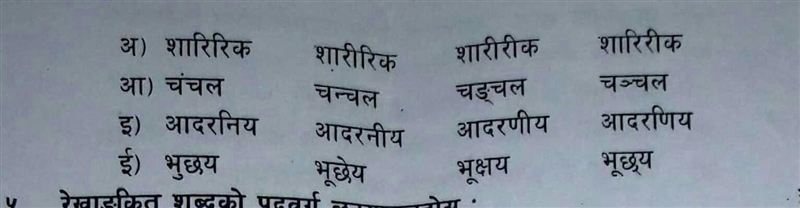 अ) शारिरिक शारीरिक शारीरीक शारिरीक
आ) चंचल चन्चल चङ्चल चञ्चल
इ) आदरनिय आदरनीय आदरणीय आदरणिय
ई) भुछय भूछेय भूक्षय भूछ्य
५ रेखाङ्कित शब्दको पदवर्ग